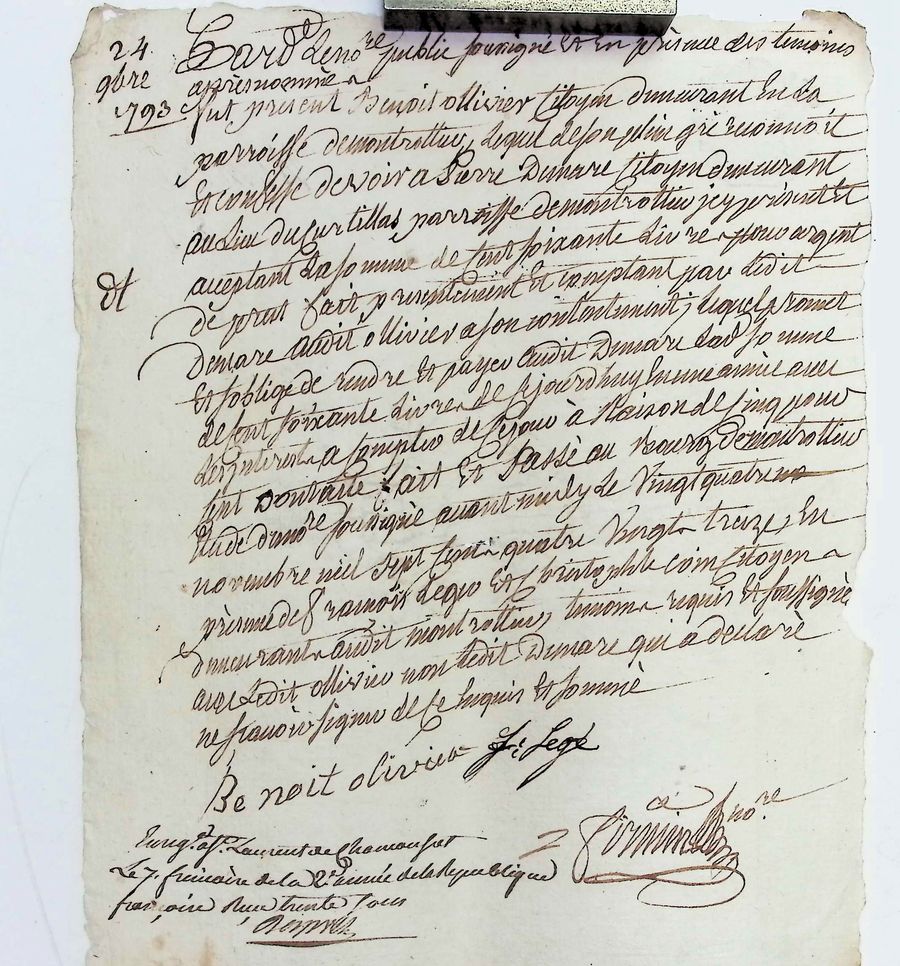 24
9bre
1793
Pardt Le nore public soussigné et En présence des temoins
apresnommés
fut present Benoit ollivier Citoyen demeurant En La
parroisse demontrottier, Lequel deson plein gré reconnoit
Et confesse devoir a Pierre Dumare Citoyen demeurant
au Lieu du Curtillas parroisse demontrottier jcy présent Et
aceptant La somme de Cent soixante Livres pour argent
dt
de pret fait presentement Et comptant par Ledit
Dumare audit ollivier a son contentement, lequel promet
Et soblige de rendre Et payer audit Dumare Lad somme
de Cent soixante Livres de cejourdhuy En une année avec
Les interest a compter de ce jour à Raison de cinq pour
Cent dont acte fait Et Passé au Bourg demontrottier
Etude dunore soussigné avant midy Le Vingt quatre
novembre mil sept Cents quatre Vingts treize, En
présence de francois Legeo Et Christophle Coin Citoyens
demeurants audit montrottier, temoins requis Et soussigné
avec Ledit ollivier non Ledit Dumare qui a declaré
ne scavoir signer de ce Enquis Et sommé
Benoit olivier fr Legé
nore
Enregé a St Laurent de Chamousset
Le 7. frimaire de la 2e année de la Republique
françoise Reçu trente sous